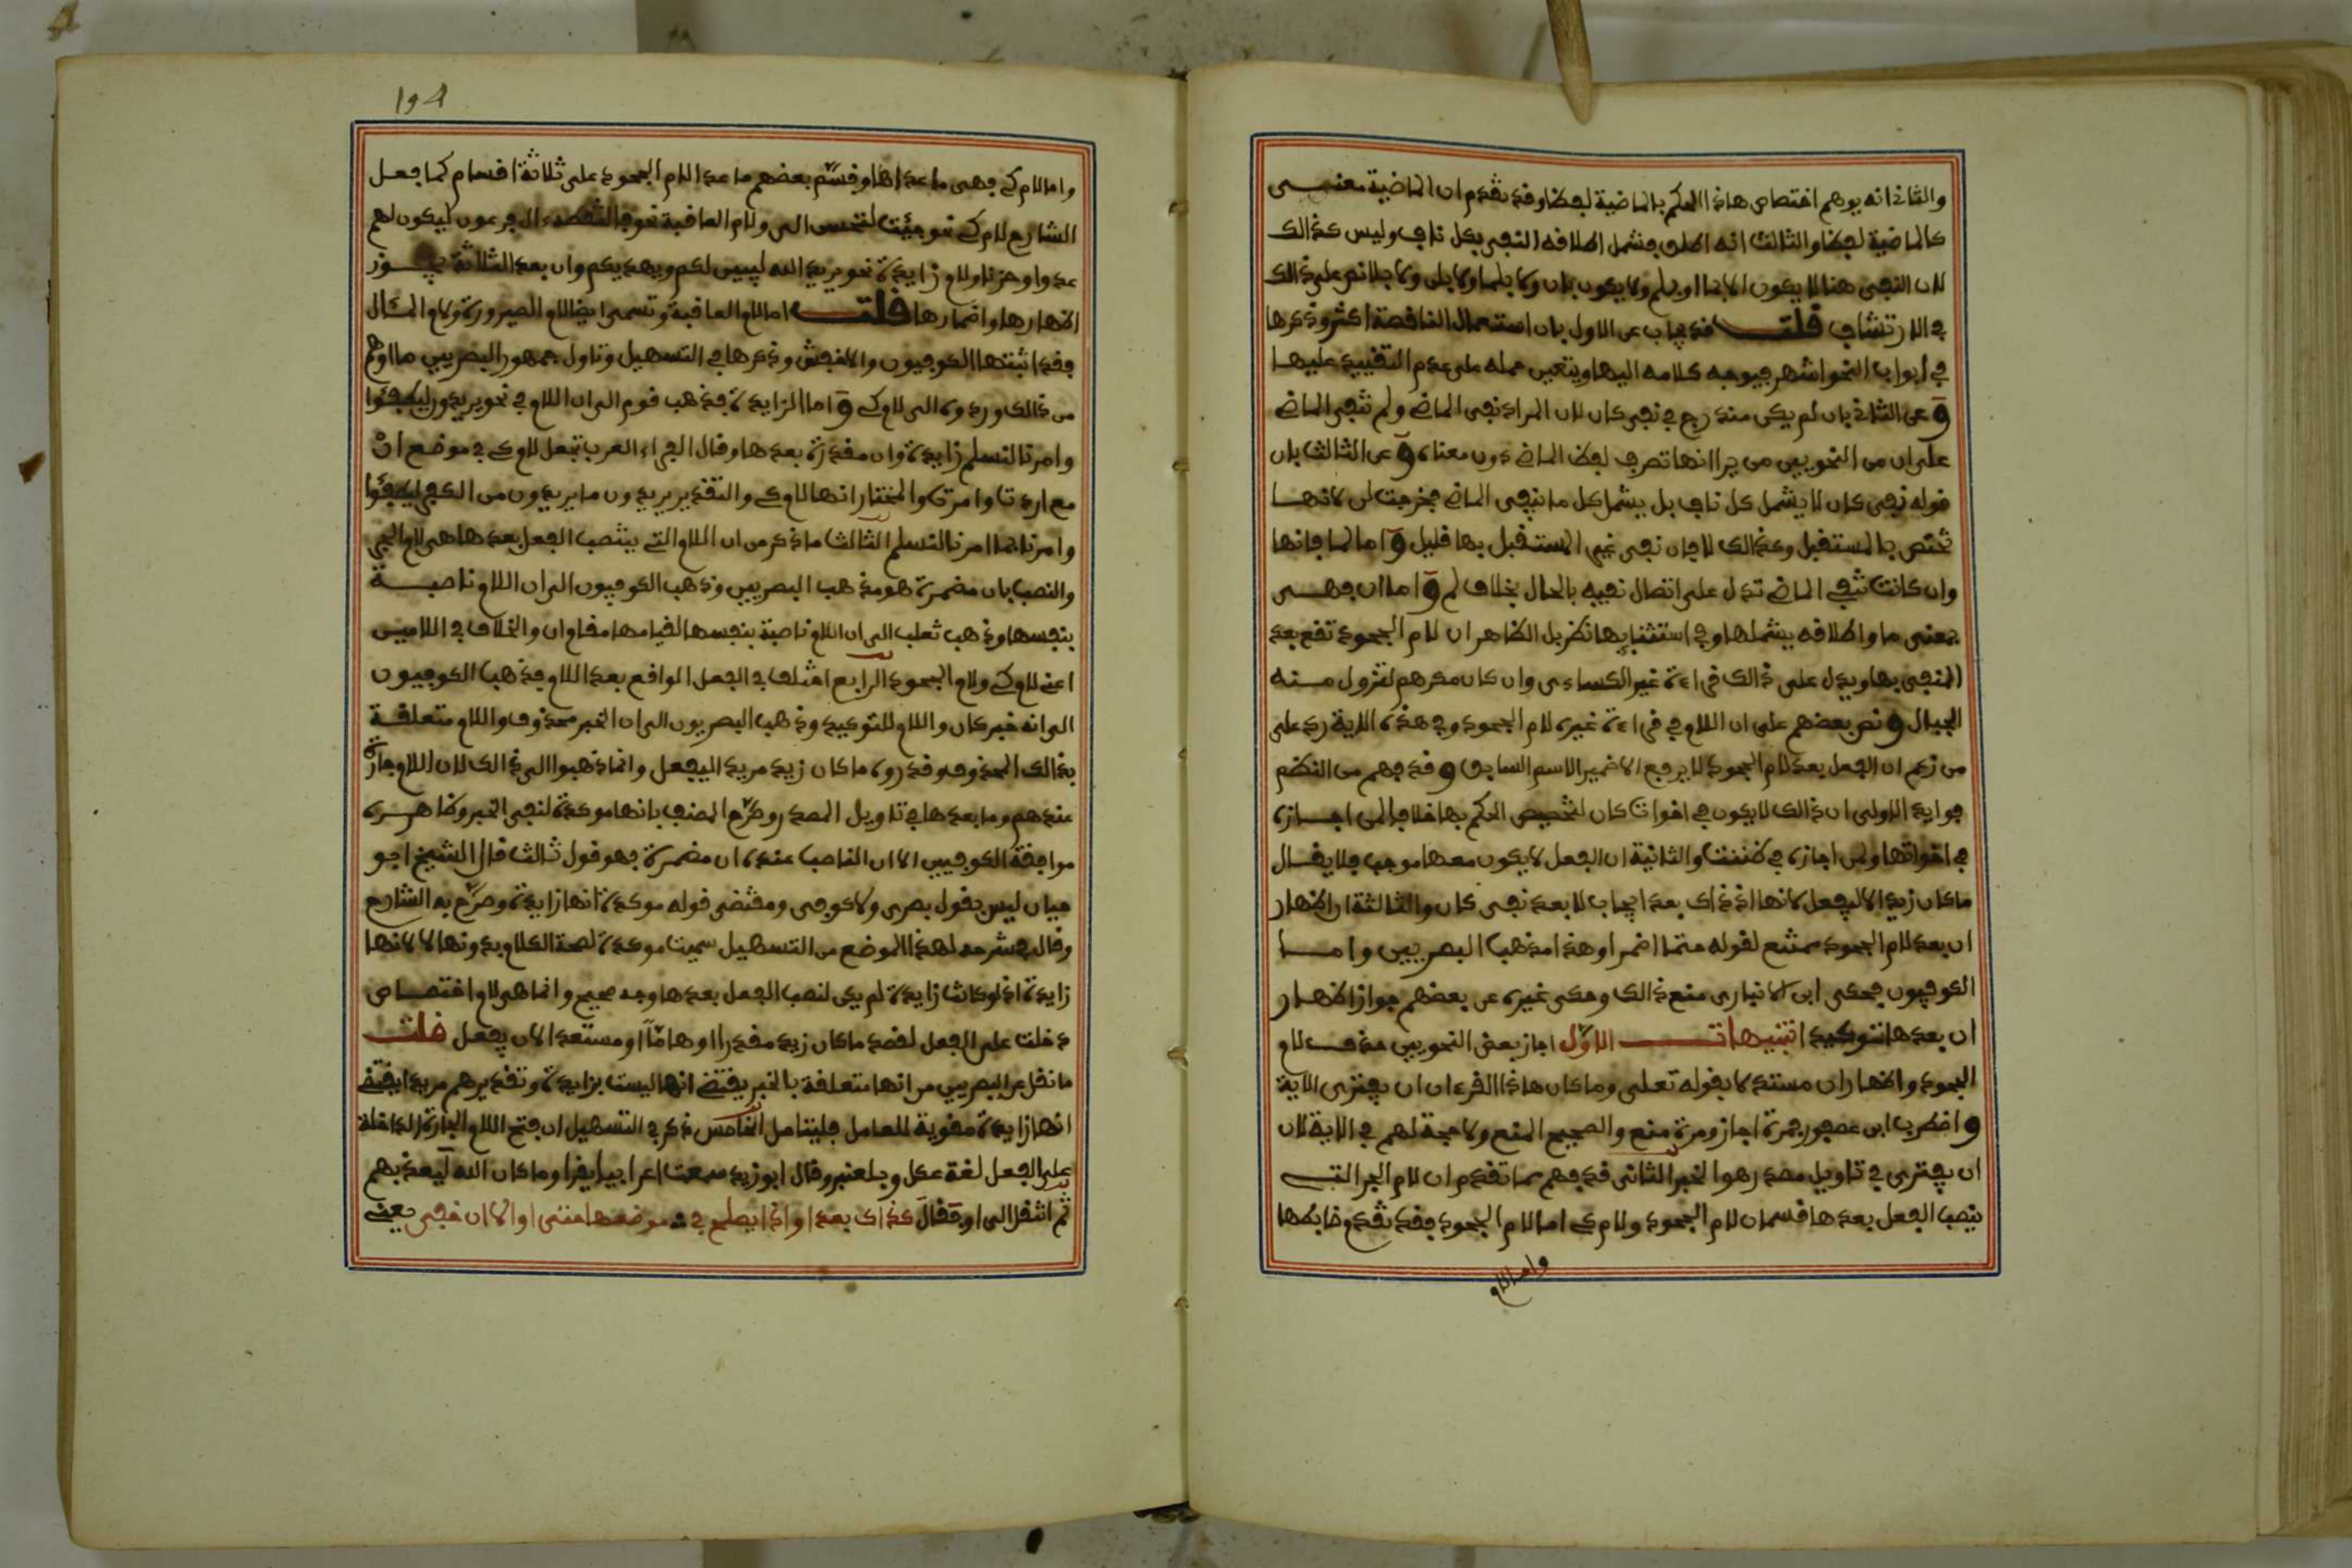 والثاني انه يوهم اختصاص هاذا الحكم بالماضية لفظا وقد تقدم ان الماضية معنى
كالماضية لفظا والثالث انه اطلق فشمل اطلاقه النفي بكل ناف وليس كذالك
لان النفي هنا لا يكون الا بما او بلم ولا يكون بان ولا بلما ولا بلن ولا بلا نص على ذالك
في الارتشاف قلت قد يجاب عن الاول بان استعمال الناقصة اكثر وذكرها
في ابواب النحو اشهر فيوجه كلامه اليها ويتعين حمله على عدم التقييد عليها
وعن الثاني بان لم يكن مندرج في نفي كان لان المراد نفي الماضي ولم تنفي الماضي
على ان من النحويين من يرا انها تصرف لفظ الماضي دون معناه وعن الثالث بان
قوله نفي كان لا يشمل كل ناف بل يشمل كل ما ينفي الماضي فخرجت لن لانها
تختص بالمستقبل وكذالك لا فان نفي غير المستقبل بها قليل واما لما فانها
وان كانت تنفي الماضي تدل على اتصال نفيه بالحال بخلاف لم واما ان فهي
بمعنى ما واطلاقه يشملها وفي استثنايها نظر بل الظاهر ان لام الجحود تقع بعد
المنفي بها ويدل على ذالك قراءة غير الكساءي وان كان مكرهم لتزول منه
الجبال ونص بعضهم على ان اللام في قراءة غيره لام الجحود وفي هذه الاية رد على
من زعم ان الفعل بعد لام الجحود لا يرفع الا ضمير الاسم السابق وقد فهم من النظم
فوايد الاولى ان ذالك لا يكون في اخوات كان لتخصيص الحكم بها خلافا لمن اجازه
في اخواتها ولمن اجازه في ظننت والثانية ان الفعل لا يكون معها موجبا فلا يقال
ماكان زيد الا ليفعل لانها اذ ذاك بعد ايجاب لا بعد نفي كان والثالثة ان اظهار
ان بعد لام الجحود ممتنع لقوله حتما اضمرا وهذا مذهب البصريين واما
الكوفيون فحكى ابن الانباري منع ذالك وحكى غيره عن بعضهم جواز اظهار
ان بعدها توكيدا تنبيهات الاول اجاز بعض النحويين حذف لام
الجحود واظهار ان مستدلا بقوله تعلى وماكان هاذا القرءان ان يفترى الاية
واضطرب ابن عصفور فمرة اجاز ومرة منع والصحيح المنع ولا حجة لهم في الاية لان
ان يفترى في تاويل مصدر هو الخبر الثاني قد فهم مما تقدم ان لام الجر التي
ينصب الفعل بعدها قسمان لام الجحود ولام كي اما لام الجحود فقد تقدم ضابطها
واما لام
194
واما لام كي فهي ما عداها وقسم بعضهم ما عدا لام الجحود على ثلاثة اقسام كما فعل
الشارح لام كي نحو جيئت لتحسن الى ولام العاقبة نحو فالتقطه ءال فرعون ليكون لهم
عدوا وحزنا ولام زايدة نحو يريد الله ليبين لكم ويهديكم وان بعد الثلاثة يجوز
اظهارها واضمارها قلت اما لام العاقبة وتسمى ايضا لام الصيرورة ولام المئال
فقد اثبتها الكوفيون والاخفش وذكرها في التسهيل وتاول جمهور البصريين ما اوهم
من ذالك ورده الى لام كي واما الزايدة فذهب قوم الى ان اللام في نحو يريدون ليطفئوا
وامرنا لنسلم زايدة وان مقدرة بعدها وقال الفراء العرب تجعل لام كي في موضع ان
مع اردت وامرت والمختار انها لام كي والتقدير يريدون ما يريدون من الكفر ليطفئوا
وامرنا بما امرنا لنسلم الثالث ما ذكر من ان اللام التي ينتصب الفعل بعدها هي لام الجر
والنصب بان مضمرة هو مذهب البصريين وذهب الكوفيون الى ان اللام ناصبة
بنفسها وذهب ثعلب الى ان اللام ناصبة بنفسها لقيامها مقام ان والخلاف في اللامين
اعني لام كي ولام الجحود الرابع اختلف في الفعل الواقع بعد اللام فذهب الكوفيون
الى انه خبر كان واللام للتوكيد وذهب البصريون الى ان الخبر محذوف واللام متعلقة
بذالك المحذوف وقدروه ماكان زيد مريدا ليفعل وانما ذهبوا الى ذالك لان اللام جارة
عندهم وما بعدها في تاويل المصدر وصرح المصنف بانها موكدة لنفي الخبر وظاهره
موافقة الكوفيين الا ان الناصب عنده ان مضمرة فهو قول ثالث قال الشيخ ابو
حيان ليس بقول بصري ولا كوفي ومقتضى قوله موكدة انها زايدة وصرح به الشارح
وقال في شرحه لهذا الموضع من التسهيل سميت موكدة لصحة الكلام بدونها لا لانها
زايدة اذ لو كانت زايدة لم يكن لنصب الفعل بعدها وجه صحيح وانما هي لام اختصاص
دخلت على الفعل لقصد ماكان زيد مقدرا او هاما او مستعدا لان يفعل قلت
ما نقل عن البصريين من انها متعلقة بالخبر يقتضي انها ليست بزايدة وتقديرهم مريدا يقتضي
انها زايدة مقوية للعامل فليتامل الخامس ذكر في التسهيل ان فتح اللام الجارة الداخلة
على الفعل لغة عكل وبلعنبر وقال ابو زيد سمعت اعرابيا يقرا وماكان الله ليعذبهم
ثم انتقل الى او فقال كذاك بعد او اذا يصلح في موضعها حتى او الا ان خفي يعني